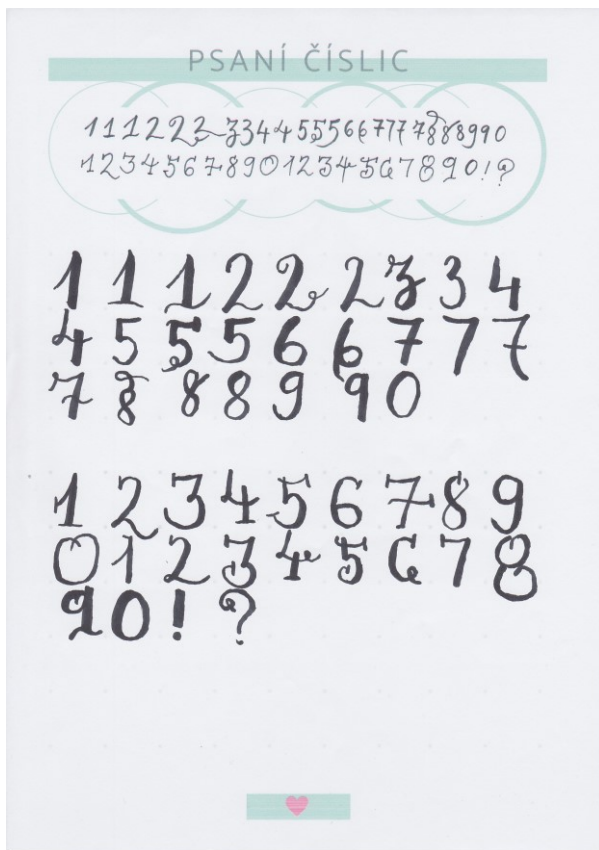 PSANÍ ČÍSLIC
1 1 1 2 2 2 3 3 4 4 5 5 5 6 6 7 7 7 7 8 8 8 9 9 0
1 2 3 4 5 6 7 8 9 0 1 2 3 4 5 6 7 8 9 0 ! ?
1 1 1 2 2 2 3 3 4
4 5 5 5 6 6 7 7 7
7 8 8 8 9 9 0
1 2 3 4 5 6 7 8 9
0 1 2 3 4 5 6 7 8
9 0 ! ?